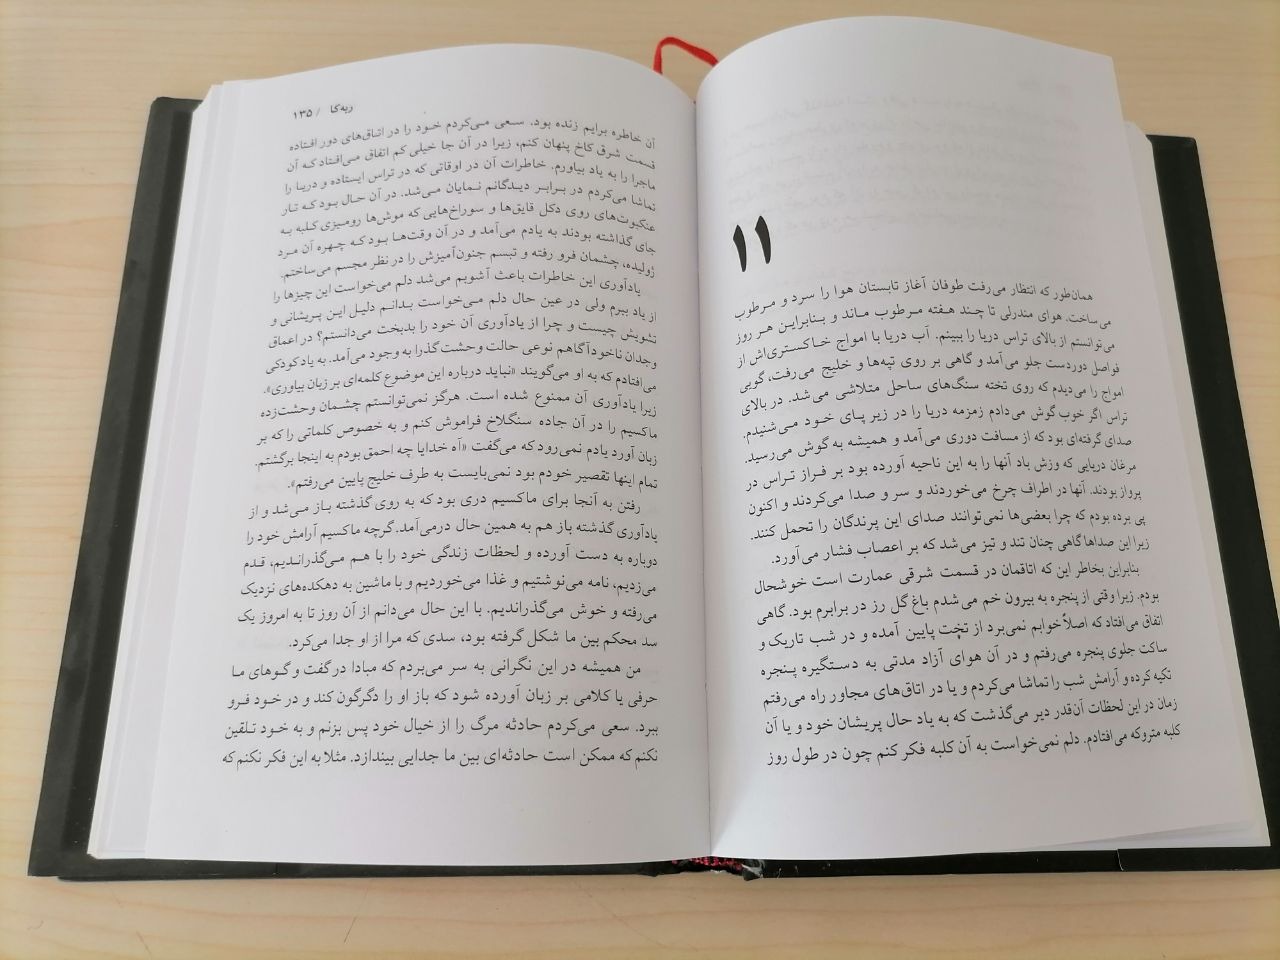 ۱۱
همان‌طور که انتظار می‌رفت طوفان آغاز تابستان هوا را سرد و مـرطوب
می‌ساخت. هوای مندرلی تا چـند هـفته مـرطوب مـاند و بـنابراین هـر روز
می‌توانستم از بالای تراس دریا را ببینم. آب دریا با امواج خـاکسـتری‌اش از
فواصل دوردست جلو می‌آمد و گاهی بر روی تپه‌ها و خلیج می‌رفت، گویی
امواج را می‌دیدم که روی تخته سنگ‌های ساحل متلاشی می‌شد. در بـالای
تراس اگر خوب گوش می‌دادم زمزمه دریا را در زیر پـای خـود مـی‌شنیدم.
صدای گرفته‌ای بود که از مسافت دوری می‌آمد و همیشه به گوش می‌رسید.
مرغان دریایی که وزش باد آنها را به این ناحیه آورده بود بر فـراز تـراس در
پرواز بودند. آنها در اطراف چرخ می‌خوردند و سر و صدا می‌کردند و اکنون
پی برده بودم که چرا بعضی‌ها نمی‌توانند صدای این پرندگان را تحمل کنند.
زیرا این صداها گاهی چنان تند و تیز می‌شد که بر اعصاب فشار می‌آورد.
بنابراین بخاطر این که اتاقمان در قسمت شرقی عمارت است خوشحال
بودم. زیرا وقتی از پنجره به بیرون خم می‌شدم باغ گل رز در برابرم بود. گاهی
اتفاق می‌افتاد که اصلاً خوابم نمی‌برد از تخت پایین آمده و در شب تاریک و
ساکت جلوی پنجره می‌رفتم و در آن هوای آزاد مدتی به دسـتگیره پـنجره
تکیه کرده و آرامش شب را تماشا می‌کردم و یا در اتاق‌های مجاور راه می‌رفتم
زمان در این لحظات آن‌قدر دیر می‌گذشت که به یاد حال پریشان خود و یا آن
کلبه متروکه می‌افتادم. دلم نمی‌خواست به آن کلبه فکر کنم چون در طول روز
ربه‌کا / ۱۳۵
آن خاطره برایم زنده بود. سـعی مـی‌کردم خـود را در اتـاق‌های دور افـتاده
قسمت شرق کاخ پنهان کنم، زیرا در آن جا خیلی کم اتفاق مـی‌افتاد کـه آن
ماجرا را به یاد بیاورم. خاطرات آن در اوقاتی که در تراس ایستاده و دریـا را
تماشا می‌کردم در بـرابـر دیـدگانم نـمایان مـی‌شد. در آن حال بـود کـه تـار
عنکبوت‌های روی دکل قایق‌ها و سوراخ‌هایی که موش‌ها رومیزی کـلبه بـه
جای گذاشته بودند به یادم می‌آمد و در آن وقت‌هـا بـود کـه چـهره آن مـرد
ژولیده، چشمان فرو رفته و تبسم جنون‌آمیزش را در نظر مجسم می‌ساختم.
یادآوری این خاطرات باعث آشوبم می‌شد دلم می‌خواست این چیزها را
از یاد ببرم ولی در عین حال دلم مـی‌خواست بـدانـم دلیـل ایـن پـریشانی و
تشویش چیست و چرا از یادآوری آن خود را بدبخت می‌دانستم؟ در اعماق
وجدان ناخودآگاهم نوعی حالت وحشت گذرا به وجود می‌آمد. به یاد کودکی
می‌افتادم که به او می‌گویند «نباید درباره این موضوع کلمه‌ای بر زبان بیاوری».
زیرا یادآوری آن ممنوع شده است. هرگز نمی‌توانستم چشـمان وحشت‌زده
ماکسیم را در آن جاده سنگلاخ فراموش کنم و به خصوص کلماتی را که بر
زبان آورد یادم نمی‌رود که می‌گفت «آه خدایا چه احمق بودم به اینجا برگشتم.
تمام اینها تقصیر خودم بود نمی‌بایست به طرف خلیج پایین می‌رفتم».
رفتن به آنجا برای ماکسیم دری بود که به روی گذشته باز مـی‌شد و از
یادآوری گذشته باز هم به همین حال درمی‌آمد. گرچه ماکسیم آرامش خود را
دوباره به دست آورده و لحظات زندگی خود را با هـم مـی‌گذرانـدیم، قـدم
می‌زدیم، نامه می‌نوشتیم و غذا می‌خوردیم و با ماشین به دهکده‌های نزدیک
می‌رفته و خوش می‌گذراندیم. با این حال می‌دانم از آن روز تا به امروز یک
سد محکم بین ما شکل گرفته بود، سدی که مرا از او جدا می‌کرد.
من همیشه در این نگرانی به سر می‌بردم که مبادا در گفت و گوهای مـا
حرفی یا کلامی بر زبان آورده شود که باز او را دگرگون کند و در خـود فـرو
ببرد. سعی می‌کردم حادثه مرگ را از خیال خود پس بزنم و به خـود تـلقین
نکنم که ممکن است حادثه‌ای بین ما جدایی بیندازد. مثلا به این فکر نکنم که